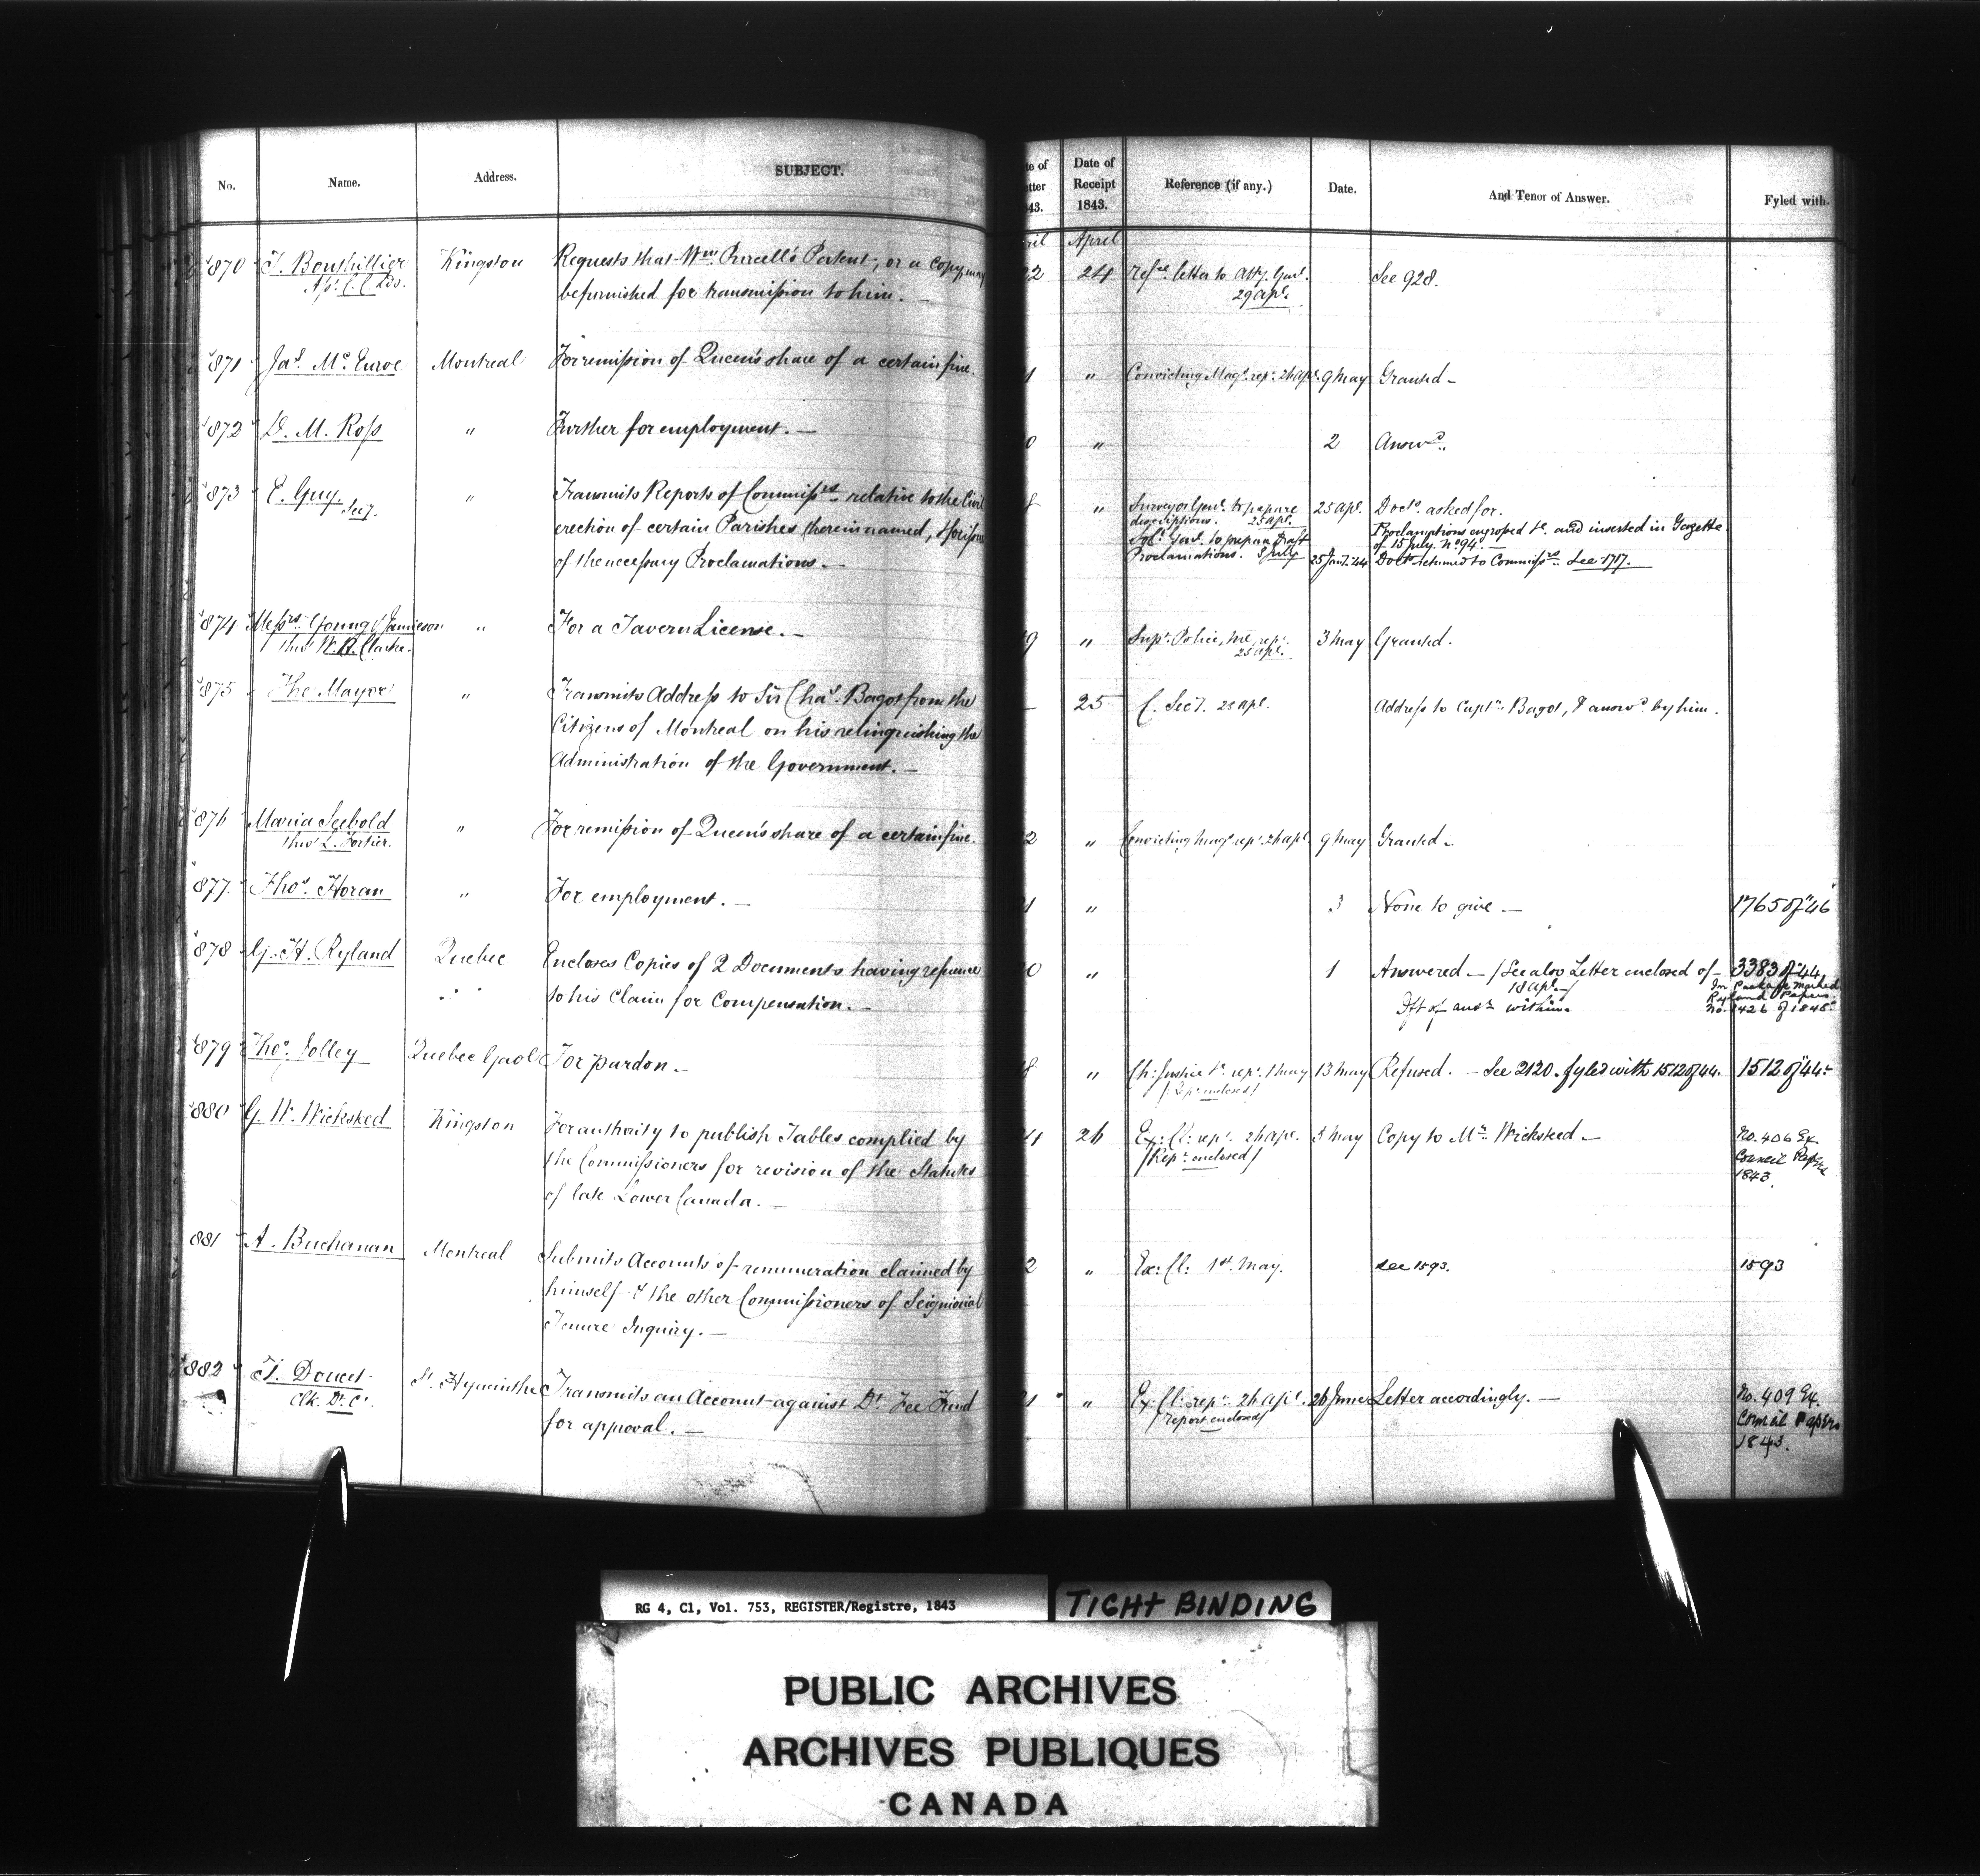 No. Name. Address. SUBJECT.
870 T. Bouthillier Kingston Requests that Wm. Purcell's Patent, or a Copy, may
As. C. C. Lds. be furnished for transmission to him. —
871 Jas. Mc. Enroe Montreal For remission of Queen's share of a certain fine.
872 D. M. Ross " Further for employment. —
873 E. Guy " Transmits Reports of Commissrs. relative to the Civil
Secy. erection of certain Parishes therein named, & for issue
of the necessary Proclamations. —
874 Messrs. Young & Jamieson " For a Tavern License. —
thro' W. R. Clarke.
875 The Mayor " Transmits Address to Sir Chas. Bagot from the
Citizens of Montreal on his relinquishing the
Administration of the Government. —
876 Maria Seebold " For remission of Queen's share of a certain fine.
thro' L. Fortier.
877. Thos. Horan " For employment. —
878 G. H. Ryland Quebec Encloses Copies of 2 Documents having reference
to his Claim for Compensation. —
879 Thos. Jolley Quebec Gaol For pardon. —
880 G. W. Wicksted Kingston For authority to publish Tables complied by
the Commissioners for revision of the Statutes
of late Lower Canada. —
881 A. Buchanan Montreal Submits Accounts of remuneration claimed by
himself & the other Commissioners of Seigniorial
Tenure Inquiry. —
882 T. Doucet St. Hyacinthe Transmits an Account against Dt. Fee Fund
Clk. Dt. Ct. for approval. —
te of Date of
tter Receipt Reference (if any.) Date. And Tenor of Answer. Fyled with.
43. 1843.
ril April
22 24 Refd. letter to Atty. Genl. See 928.
29 Apl.
1 " Convicting Magt. rept. 26 Apl. 9 May Granted —
0 " 2 Answd.
8 " Surveyor Genl. to prepare 25 Apl. Docts. asked for.
descriptions. 25 Apl. Proclamations engrossed &c. and inserted in Gazette
Solr. Genl. to prepare Draft of 15 July No. 94. —
Proclamations. 5 July 25 Jany. '44 Docts. returned to Commissrs. See 1717.
9 " Supt. Police, Ml. rept. 3 May Granted.
25 Apl.
— 25 C. Secy. 28 Apl. Address to Captn. Bagot, & answd. by him.
2 " Convicting Magt. rept. 26 Apl. 9 May Granted —
1 " 3 None to give — 1765 of "46
0 " 1 Answered — / See also Letter enclosed of — 3383 of "44
18 Apl. —/ In Package marked
Dft of ansr. within. Ryland Papers.
No. 1426 of 1846
8 " Ch: Justice &c. rept. 1 May 13 May Refused. — See 2120. fyled with 1512 of 44. 1512 of "44.
/Rept. enclosed/
24 26 Ex: Cl: rept. 26 Apl. 5 May Copy to Mr. Wicksted — No. 406 Ex.
/Rept. enclosed/ Council Papers
1843.
2 " Ex: Cl: 1st. May. See 1593. 1593
21 " Ex: Cl: rept. 26 Apl. 26 June Letter accordingly. — No. 409 Ex.
/report enclosed/ Council Papers
1843.
RG 4, C1, Vol. 753, REGISTER/Registre, 1843
TIGHT BINDING
PUBLIC ARCHIVES
ARCHIVES PUBLIQUES
CANADA